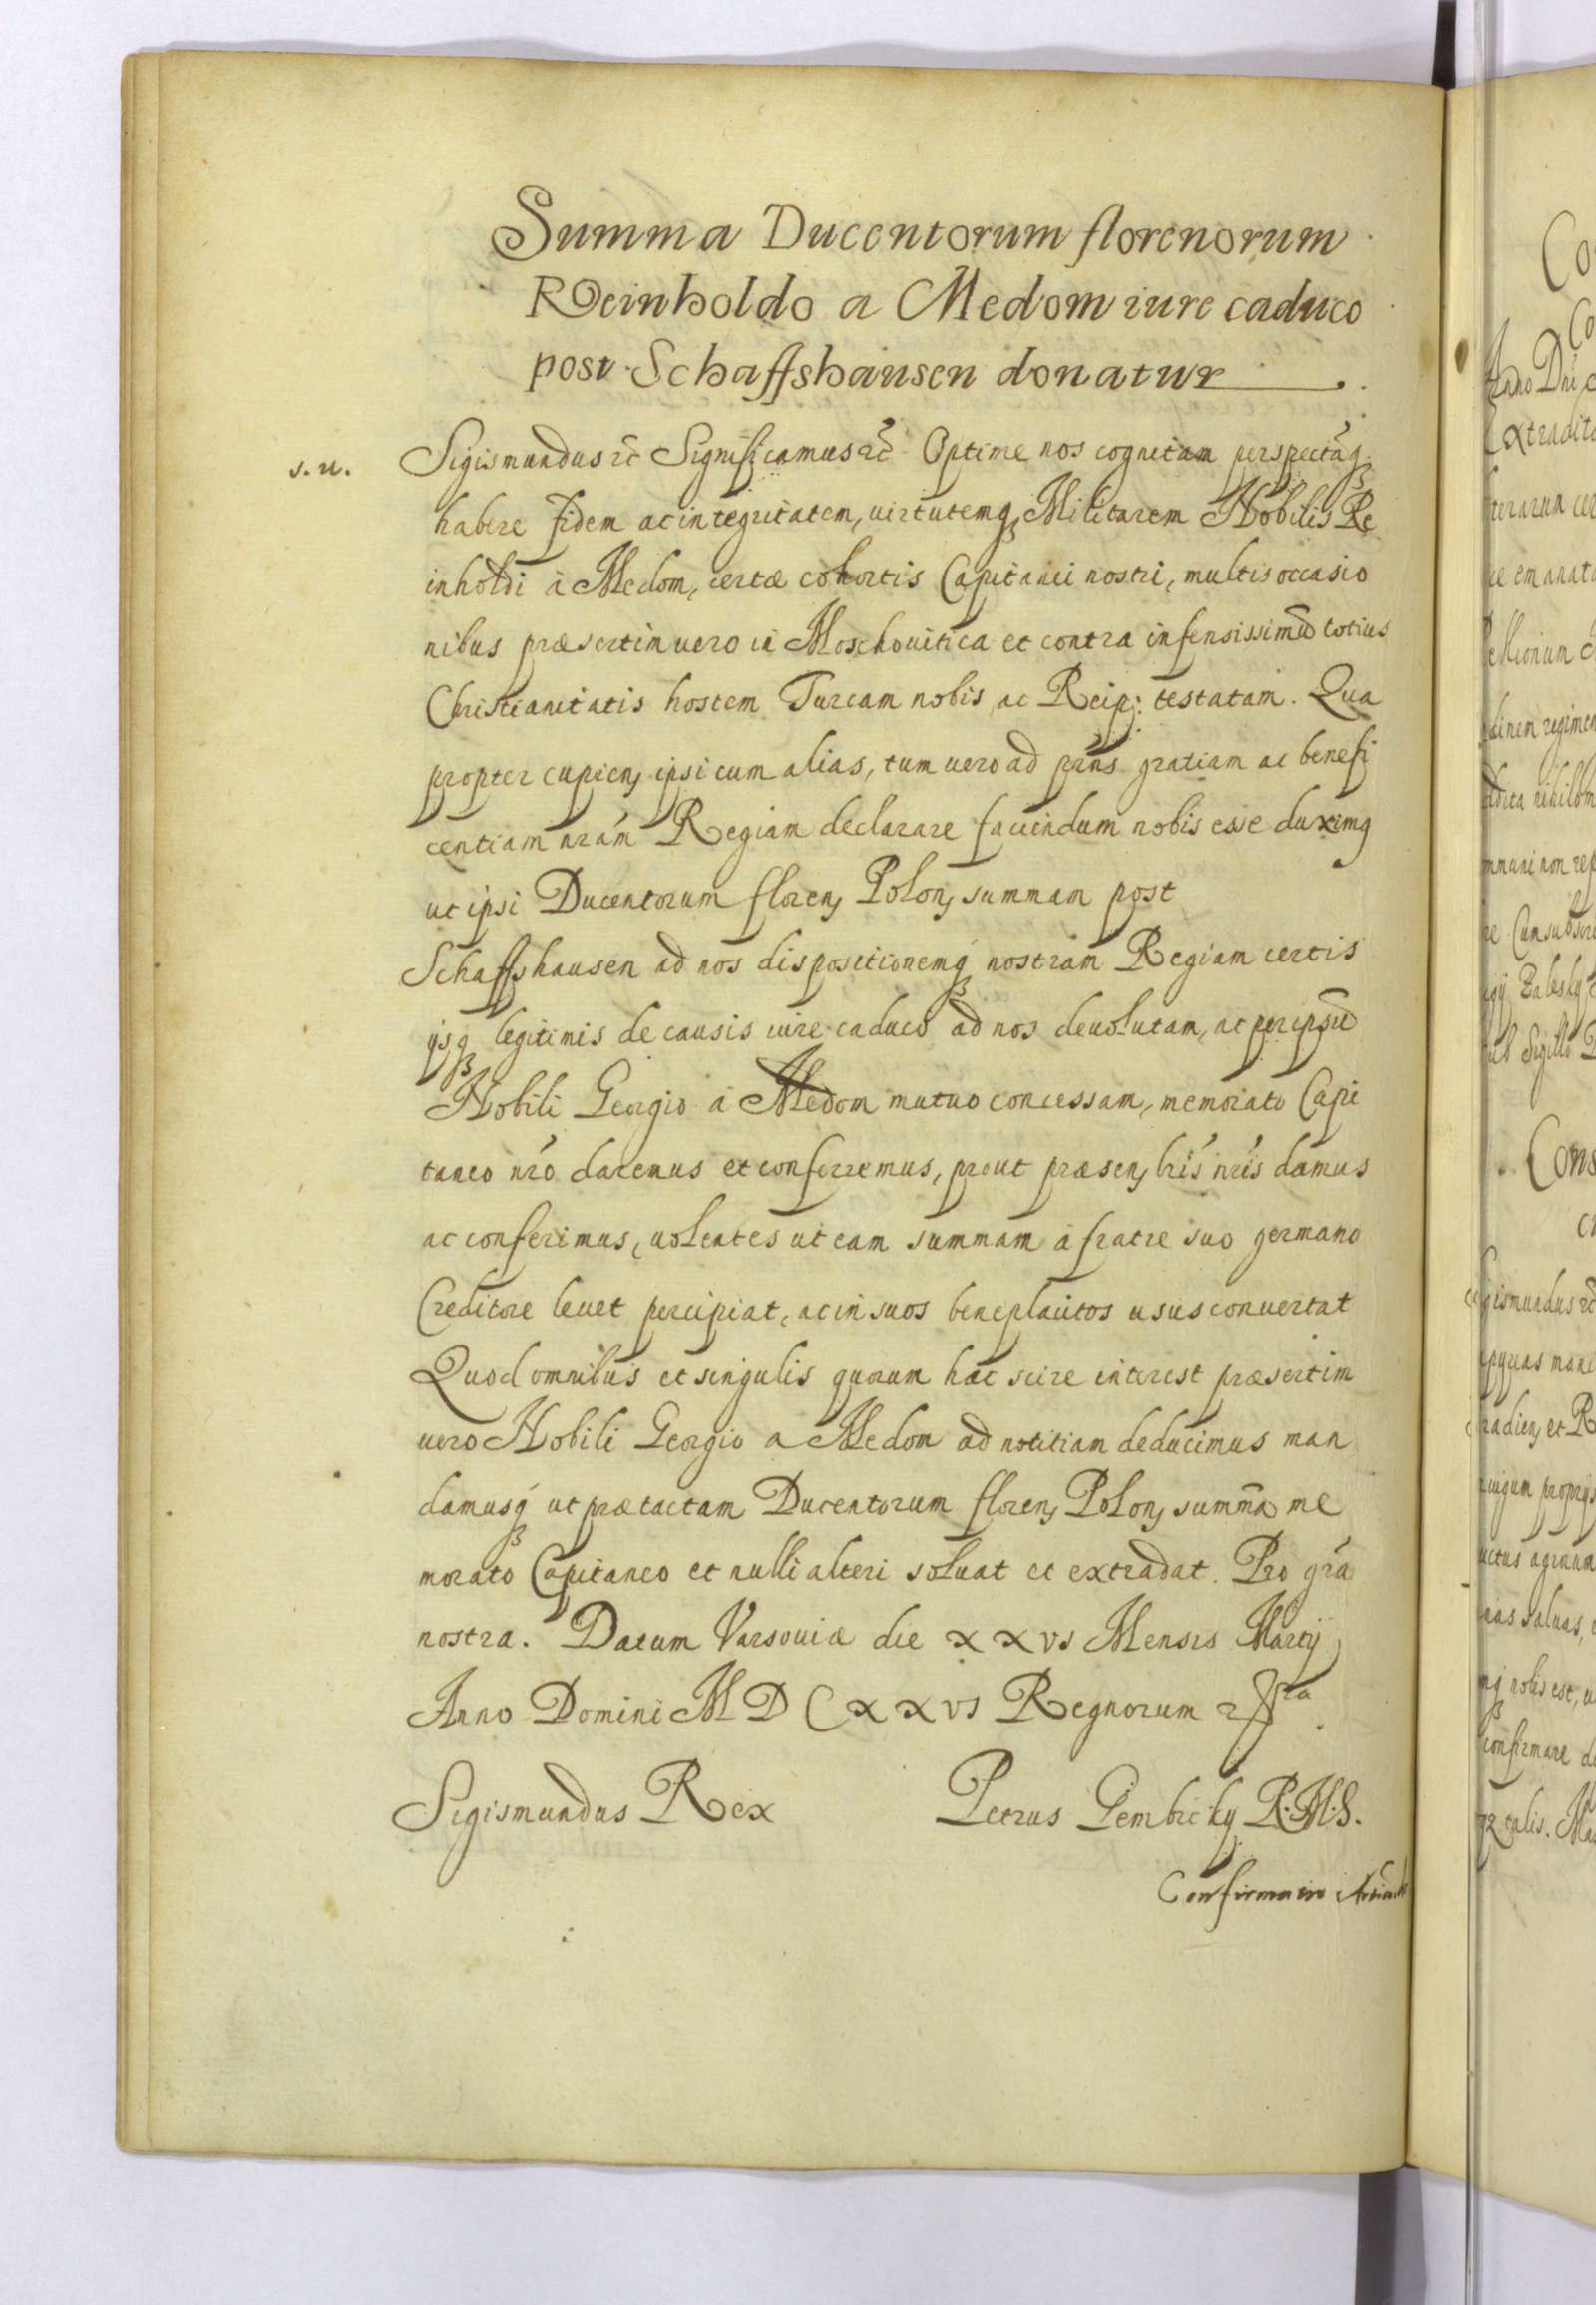 Summa Ducentorum florenorum
Reinholdo a Medom iure caduco
post Schaffshausen donatur
s. n. Sigismundus etc Significamus etc Optime nos cognitam perspectāq;
habere fidem ac integritatem, uirtutemq; Militarem Nobilis Re
inholdi à Medom, certæ cohortis Capitanei nostri, multis occasio
nibus præsertim uero in Moschouitica et contra infensissimū totius
Christianitatis hostem Turcam nobis ac Reip: testatam. Qua
propter cupien; ipsi cum alias, tum uero ad prńs gratiam ac benefi
centiam nrám Regiam declarare faciendum nobis esse duximq
ut ipsi Ducentorum floren; Polon; summam post
Schaffshausen ad nos dispositionemq; nostram Regiam certis
ijsq; legitimis de causis iure caduco ad nos deuolutam, ac per ipsū
Nobili Georgio à Medom mutuo concessam, memorato Capi
taneo nró daremus et conferremus, prout præsen; lrís nrís damus
ac conferimus, uolentes ut eam summam à fratre suo germano
Creditore leuet percipiat, ac in suos beneplacitos usus conuertat
Quod omnibus et singulis quorum hac scire interest præsertim
uero Nobili Georgio a Medom ad notitiam deducimus man
damusq; ut prætactam Ducentorum floren; Polon; summā me
morato Capitaneo et nulli alteri soluat et extradat. Pro grá
nostra. Datum Varsouiæ die XXVI Mensis Martij
Anno Domini MDCXXVI Regnorum
Sigismundus Rex Petrus Gembicky R.M.S.
Confirmatio